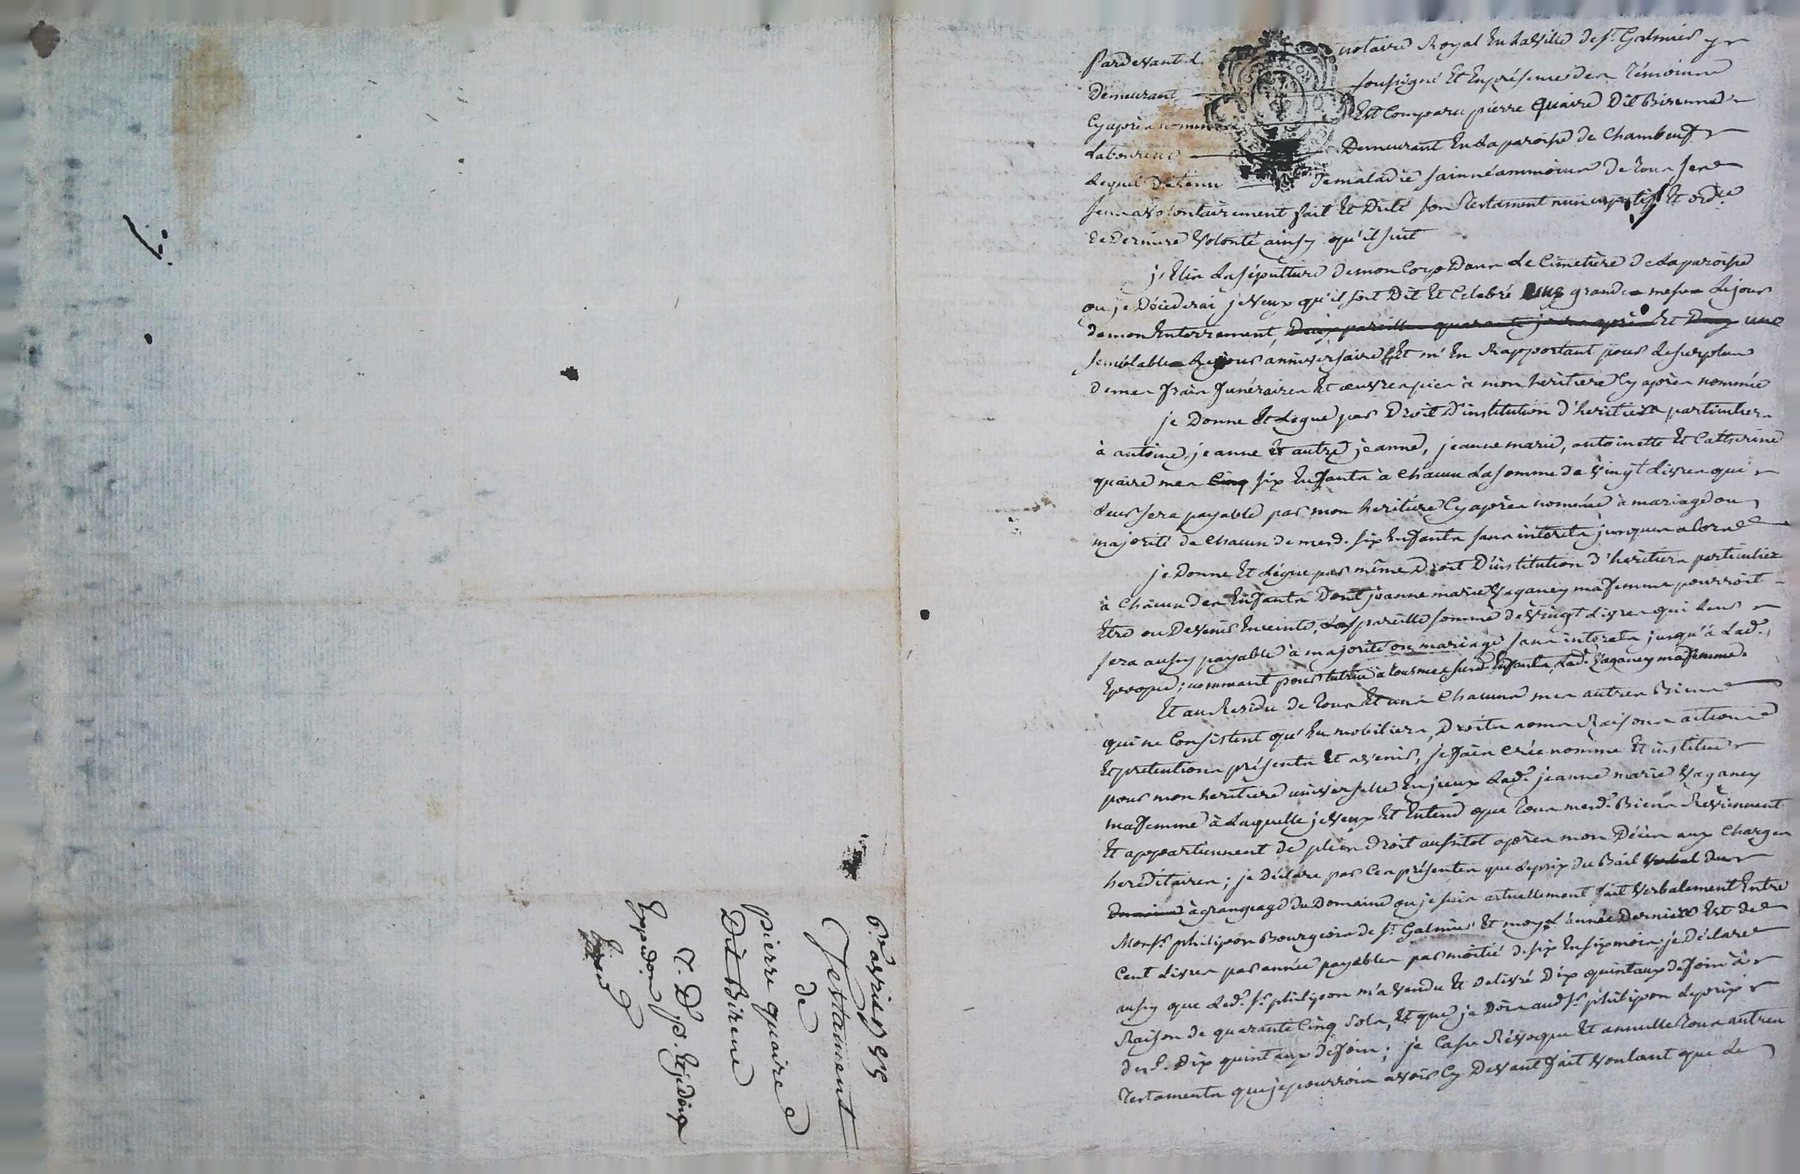 Pardevant Le notaire Royal En La Ville de St. Galmier
Demeurant soussigné Et En présence des Témoins
Cy après nommés Est Comparu pierre quaire Dit Birenne
Laboureur Demeurant En La paroisse de Chambeuf
Lequel détenu De maladie sain néammoins de tous ses
sens a volontairement fait Et Dicté son Testament nuncupatif Et ord.re
de Derniere Volonté ainsy qu'il suit
j'Elis La sépulture de mon Corps Dans Le Cimetière de La paroisse
ou je Décéderai je Veux qu'il soit Dit Et Célébré une grande messe Le jour
de mon Enterrement, Deux pareilles quarante jours après Et Deux une
semblable Le jour anniversaire Et m'En Rapportant pour Le surplus
de mes frais funéraires Et œuvres pies à mon heritiere Cy après nommée
je Donne Et Legue par Droit D'institution d'heritiers particuliers
à antoine, jeanne Et autre jeanne, jeanne marie, antoinette Et Catherine
quaire mes Cinq six Enfants à Chacun La somme de Vingt Livres qui
Leur sera payable par mon heritiere Cy après nommée à mariage ou
majorité de Chacun de mesd. six Enfants sans intérêts jusques alors
je Donne Et Légue par même Droit D'institution d'heritiers particuliers
à Chacun des Enfants Dont jeanne marie Vaganey ma femme pourroit
Etre ou Devenir Enceinte, La pareille somme de Vingt Livres qui Leur
sera aussy payable à majorité ou mariage sans intérêts jusqu'à Lad.
Epoque; nommant pour tutrice à tous mes susd. Enfants, Lad. Vaganey ma femme.
Et au Residu de tous Et uns Chacuns mes autres Biens
qui ne Consistent qu'En mobiliers, Droits noms Raisons actions
Et prétentions présents Et avenir, je fais crée nomme Et institue
pour mon heritiere universelle En jceux Lad. jeanne marie Vaganey
ma femme à Laquelle je Veux Et Entend que Tous mesd. Biens Reviennent
Et appartiennent de plein Droit aussitot après mon Décès aux Charges
hereditaires; je Déclare par Ces présentes que Le prix du Bail Verbal du
Domaine à grangeage du Domaine ou je suis actuellement fait Verbalement Entre
Monsr. philipon Bourgeois de St. Galmier Et moy L'année Derniere Est de
Cent Livres par année payables par moitié de six En six mois je Déclare
aussy que Led. Sr. philipon m'a Vendu Et délivré Dix quintaux de foin à
Raison de quarante Cinq sols, Et que je Dois aud. Sr. philipon Le prix
desd. Dix quintaux de foin; je Casse Révoque Et annulle Tous autres
Testaments que je pourrois avoir Cy Devant fait Voulant que Le
Testament
de
Pierre quaire
Dit Birene